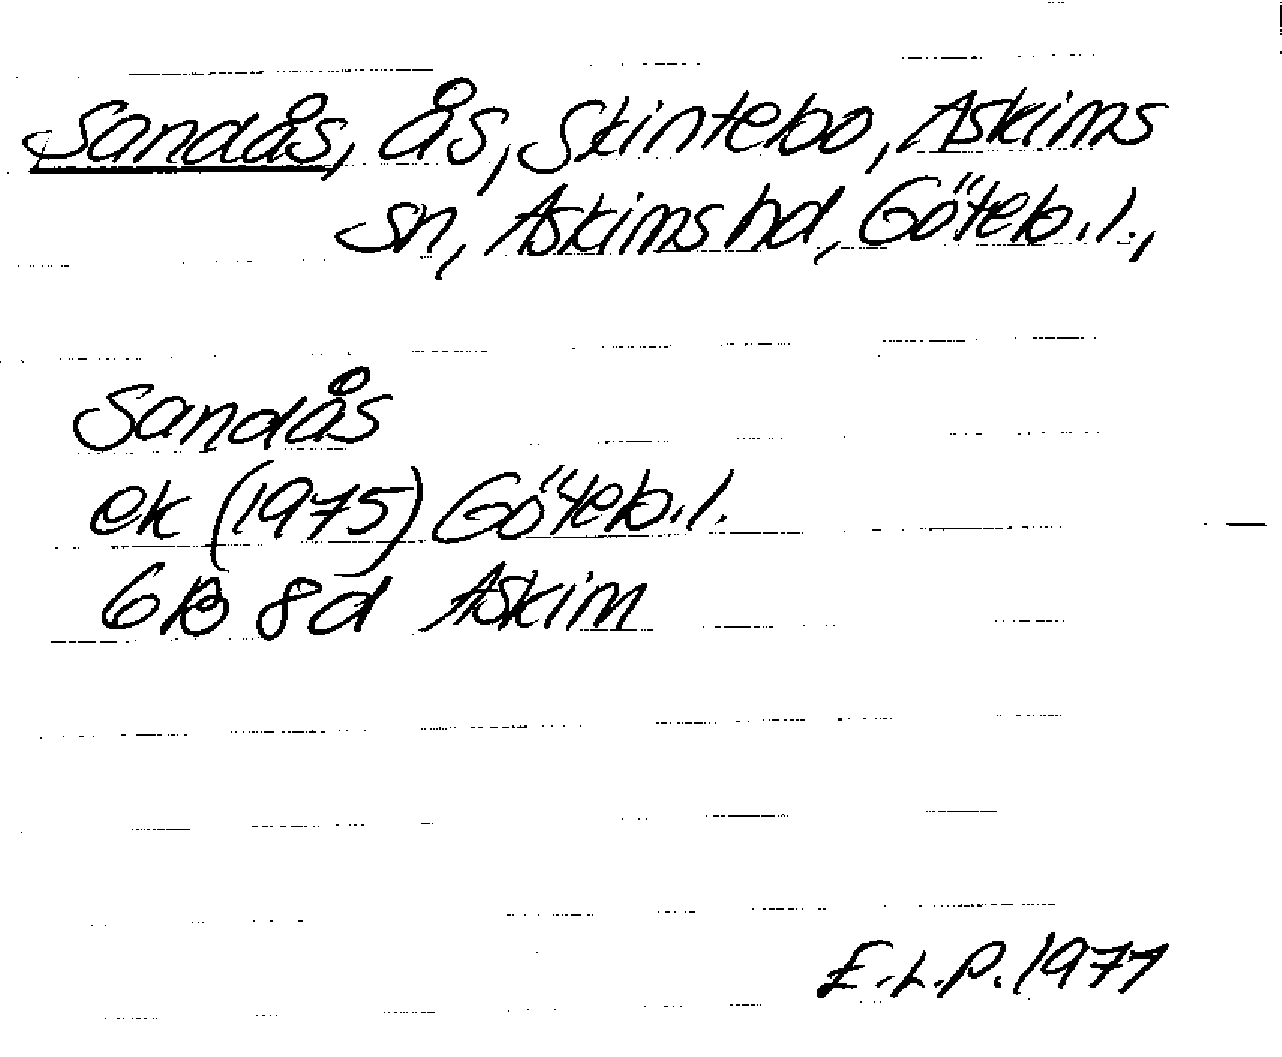 Sandås, ås, Skintebo, Askims
sn, Askims hd, Göteb.l.,
Sandås
ek (1975) Göteb.l.
6B 8d Askim
E.L.P. 1977